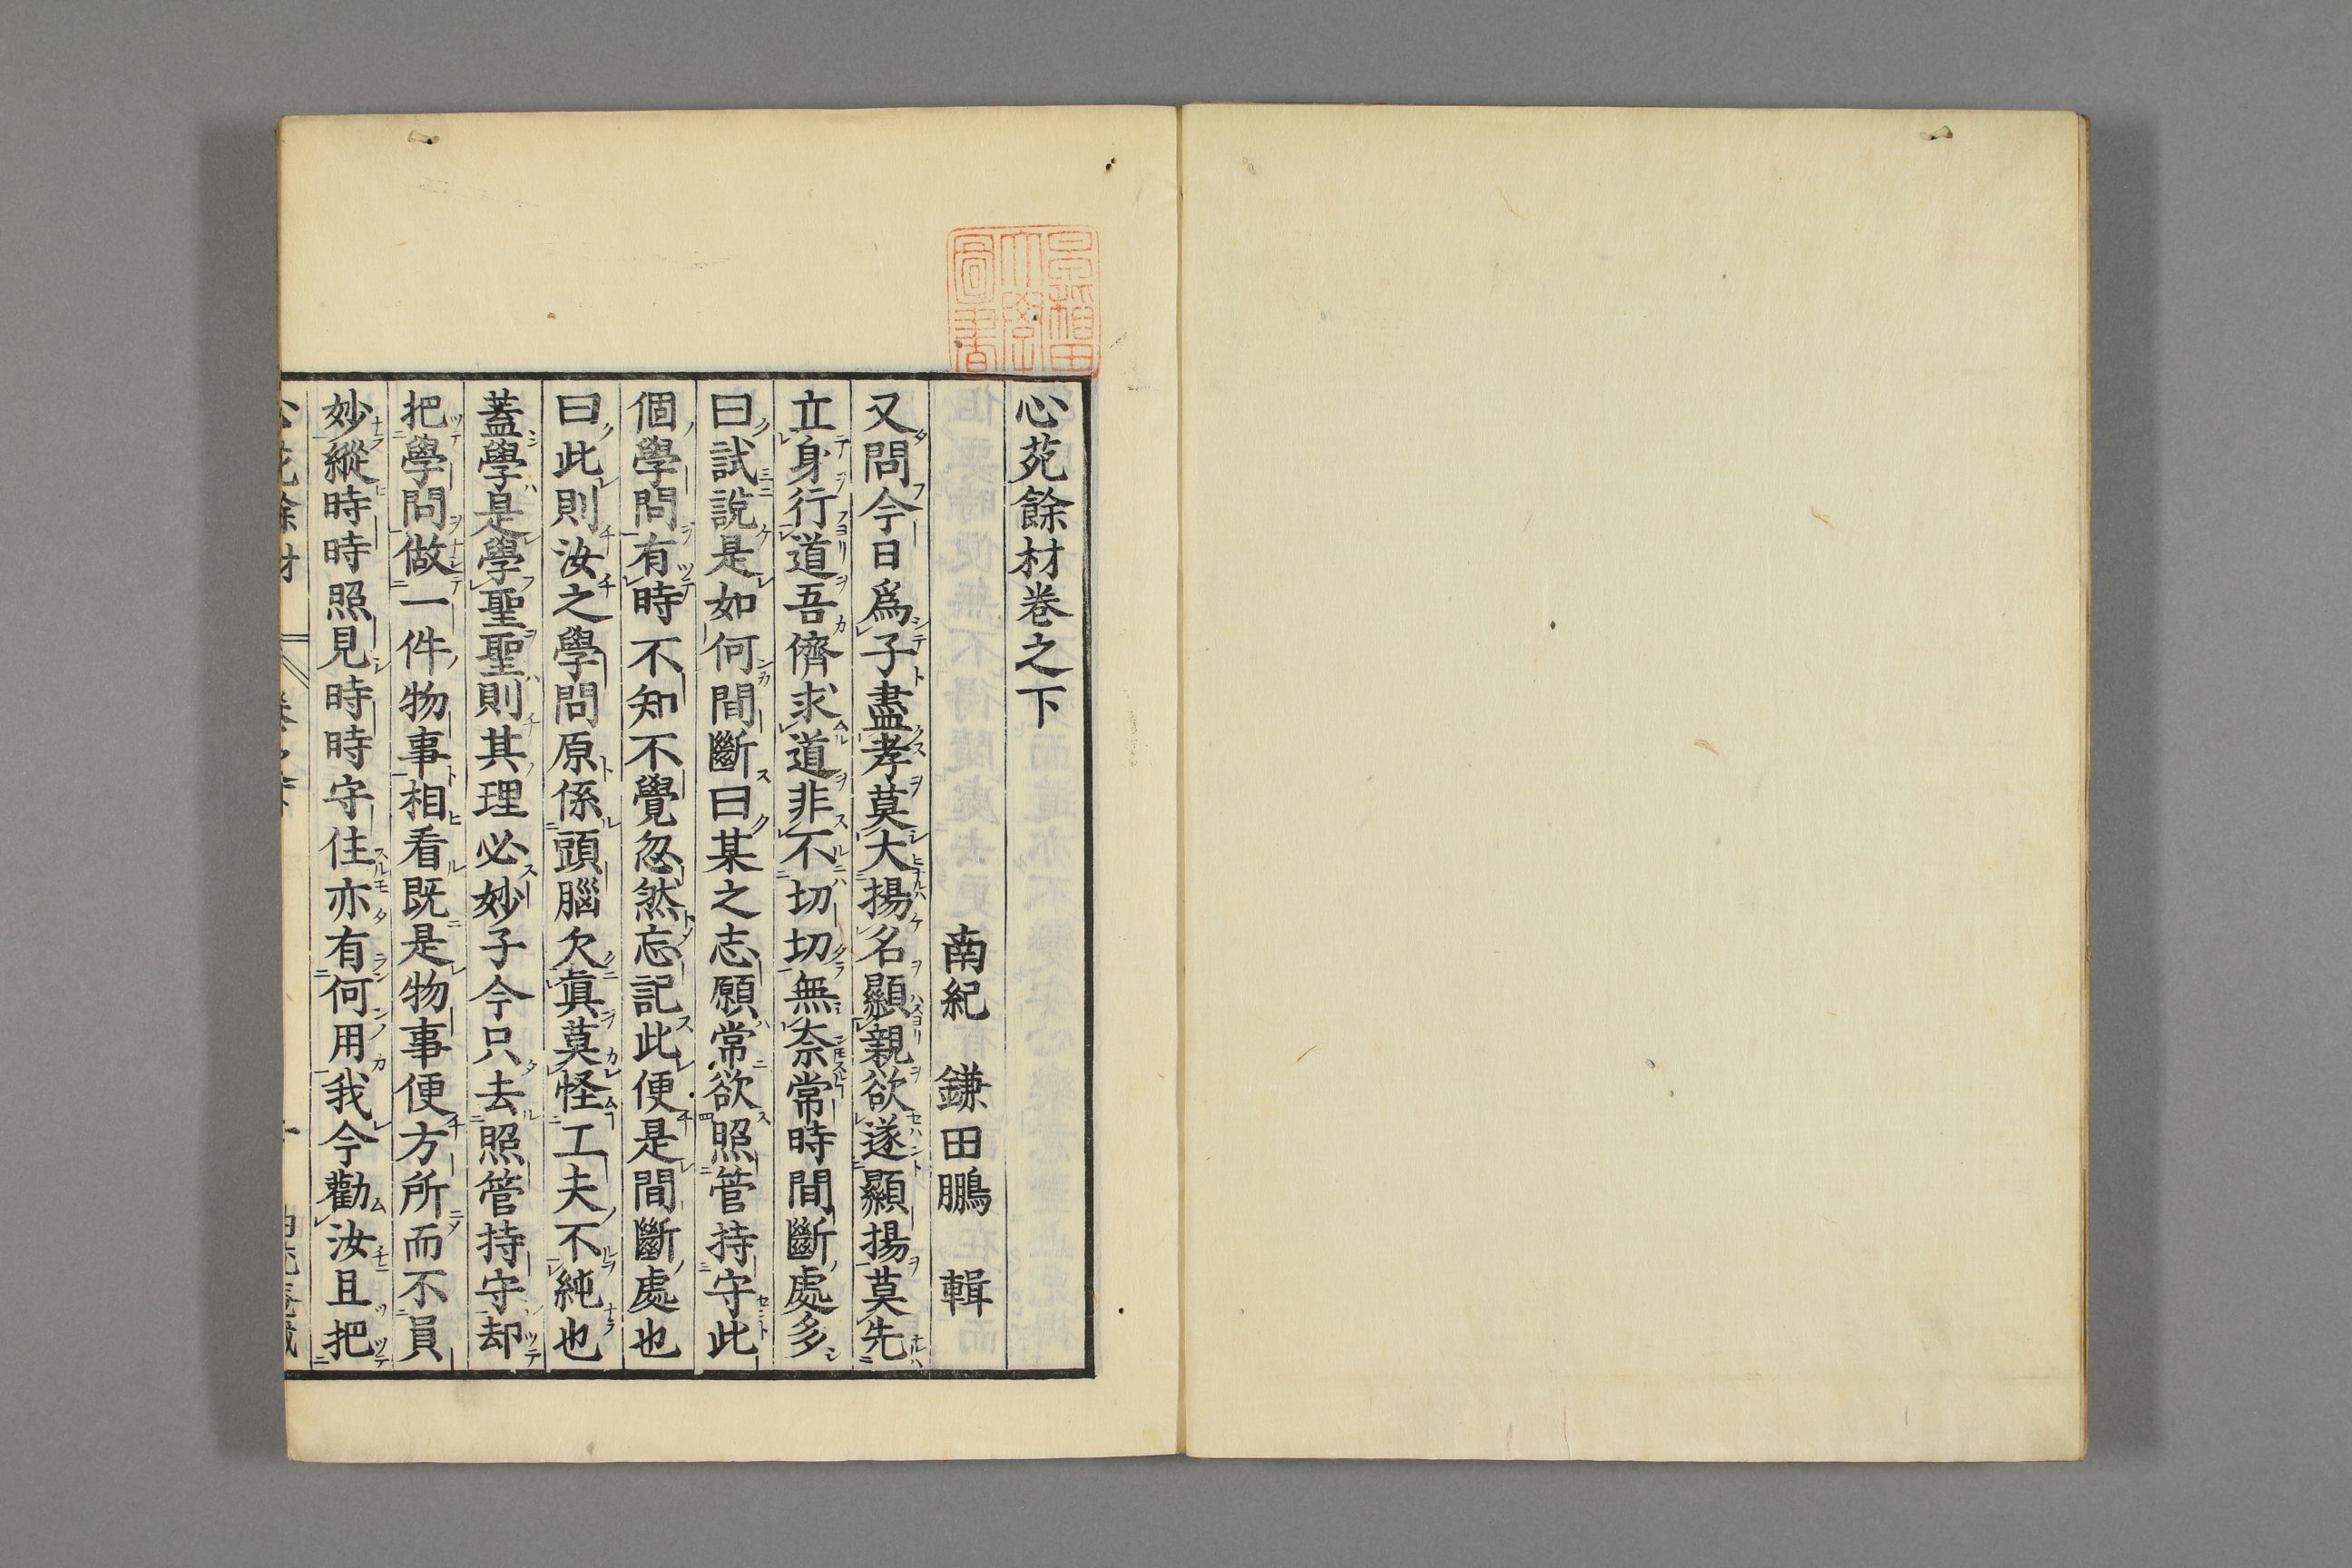 心苑餘材巻之下
南紀 鎌田鵬 輯
又問今日爲子盡孝莫大揚名顯親欲遂顯揚莫先
立身行道吾儕求道非不切切無柰常時間斷處多
曰試說是如何間斷曰某之志願常欲照管持守此
個學問有時不知不覺忽然忘記此便是間斷處也
曰此則汝之學問原係頭腦欠眞莫怪工夫不純也
蓋學是學聖聖則其理必妙子今只去照管持守却
把學問做一件物事相看既是物事便方所而不員
妙縱時時照見時時守住亦有何用我今勸汝且把